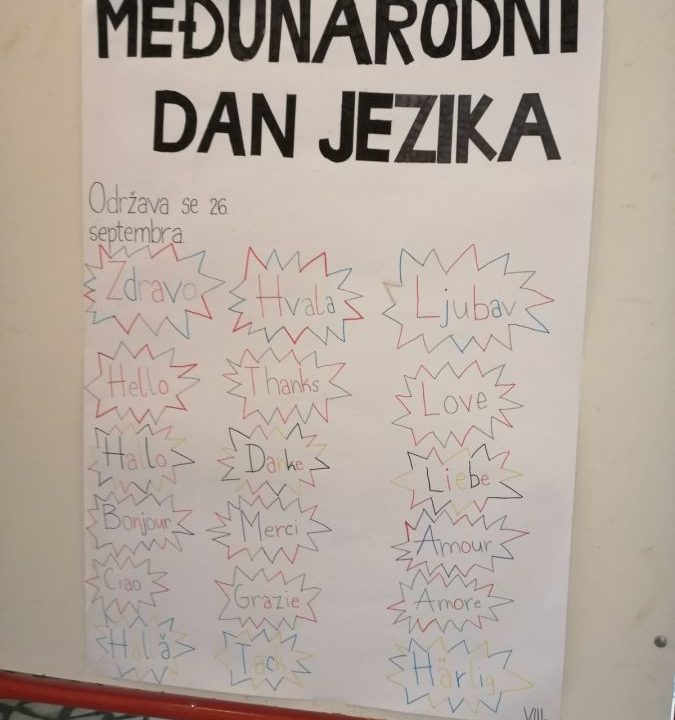 MEĐUNARODNI
DAN JEZIKA
Održava se 26.
septembra.
Zdravo Hvala Ljubav
Hello Thanks Love
Hallo Danke Liebe
Bonjour Merci Amour
Ciao Grazie Amore
Hallå Tack Härlig
VIII